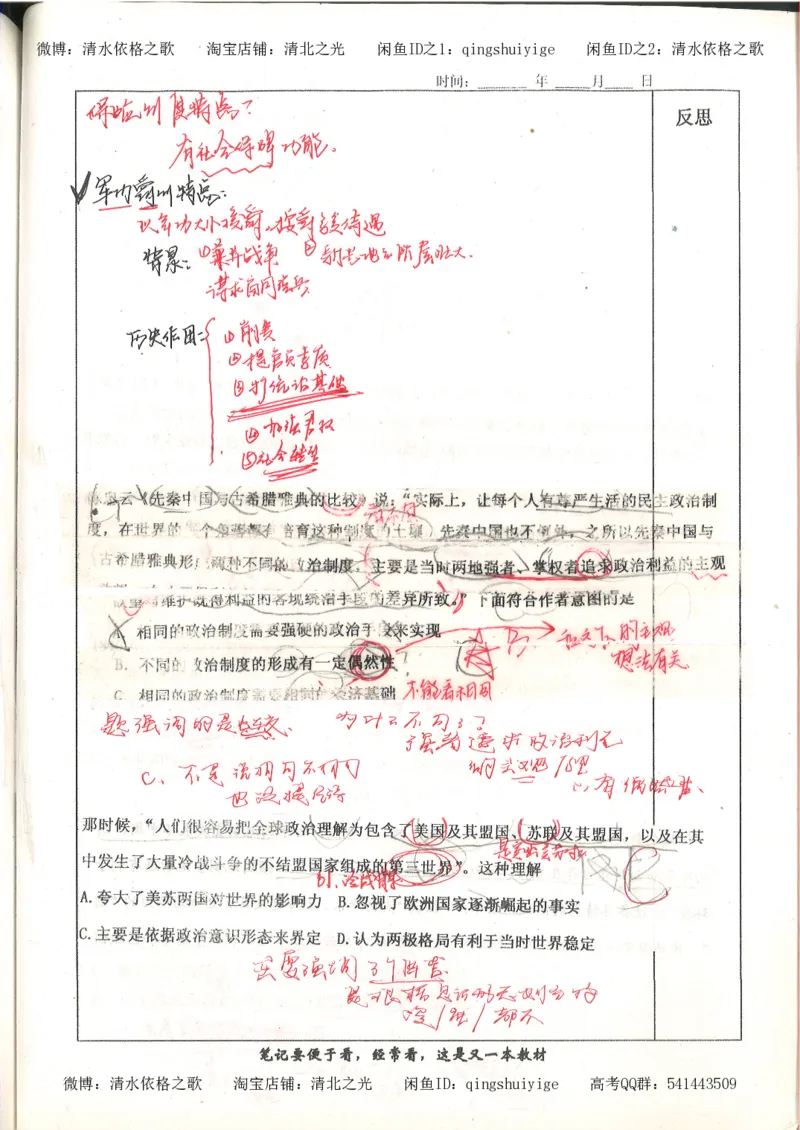 微博：清水依格之歌 淘宝店铺：清北之光 闲鱼ID之1：qingshuiyige 闲鱼ID之2：清水依格之歌
时间：____ 年 ____月____ 日
反思
有社会保障功能。
军功爵制特点：
以军功大小授爵、按爵享待遇
背景：①兼并战争 ②新兴地主阶层壮大.
谋求富国强兵
历史作用：①削贵
②提官员素质
③打统治基础
④加强君权
⑤社会转型
云《先秦中国与古希腊雅典的比较》说：“实际上，让每个人有尊严生活的民主政治制
度，在世界的 个角落都有培育这种制度的土壤）先秦中国也不例外，之所以先秦中国与
古希腊雅典形 两种不同的政治制度，主要是当时两地强者、掌权者追求政治利益的主观
维护既得利益的客观统治手段的差异所致。” 下面符合作者意图的是
A. 相同的政治制度需要强硬的政治手段来实现
B. 不同的政治制度的形成有一定偶然性
和 的主观
想法有关
C. 相同的政治制度需要相同的经济基础 不能看相同
题强调的是比较、 为什么不同？？
强者追求政治利益
C、不是说明为何不同
有偶然性
那时候，“人们很容易把全球政治理解为包含了美国及其盟国、苏联及其盟国，以及在其
中发生了大量冷战斗争的不结盟国家组成的第三世界”。这种理解
冷战背景
A.夸大了美苏两国对世界的影响力 B.忽视了欧洲国家逐渐崛起的事实
C.主要是依据政治意识形态来界定 D.认为两极格局有利于当时世界稳定
强调 3个阵营
是根据意识形态划分的
笔记要便于看，经常看，这是又一本教材
微博：清水依格之歌 淘宝店铺：清北之光 闲鱼ID：qingshuiyige 高考QQ群：541443509